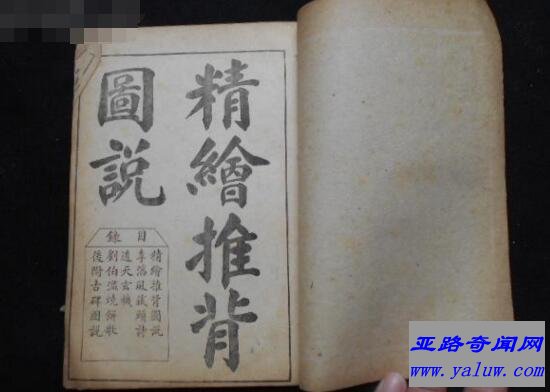 精繪推背
圖說
目錄
精繪推背圖說
李淳風藏頭詩
透天玄機
劉伯溫燒餅歌
後附古碑圖說
亚路奇闻网
www.yaluw.com